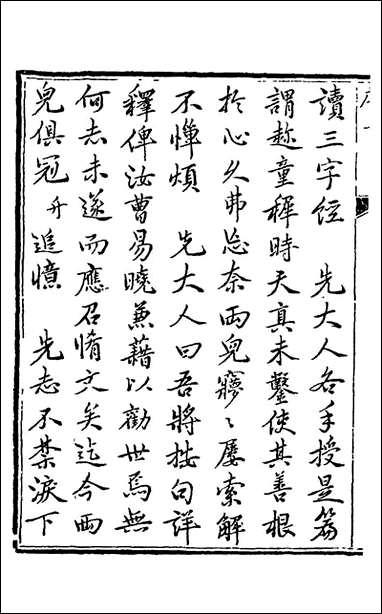 讀三字經　先大人各手授是篇
謂趁童穉時天真未鑿使其善根
於心久弗忘奈兩兒寥〻屢索解
不憚煩　先大人曰吾將按句詳
釋俾汝曹易曉兼藉以勸世焉無
何志未遂而應召脩文矣迄今兩
兒俱冠升追憶　先志不禁淚下